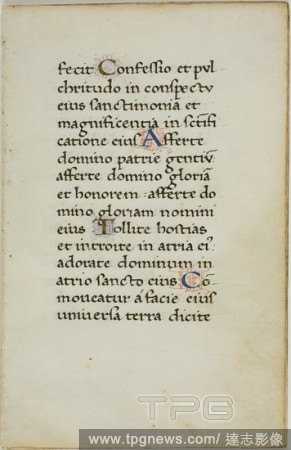 fecit Confessio et pul
chritudo in conspectu
eius sanctimonia et
magnificentia in sctifi
catione eius Afferte
domino patrie gentiū
afferte domino gloriā
et honorem afferte do
mino gloriam nomini
eius Tollite hostias
et introite in atria ei⁹
adorate dominum in
atrio sancto eius Co-
moveatur á facie eius
universa terra dicite
TPG
www.tpgnews.com / 達志影像